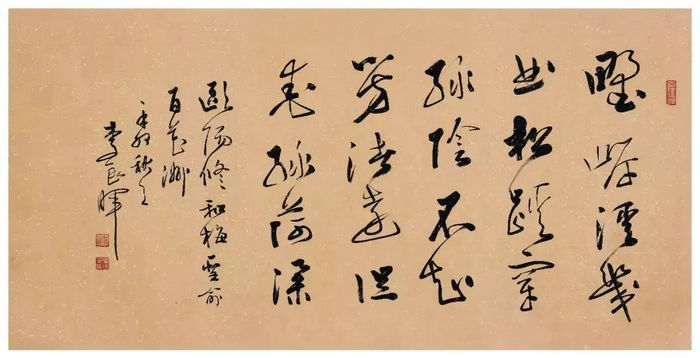 野岸溪幾
曲松蹊穿
綠陰不知
芳渚遠但
愛綠荷深
歐陽修和梅聖俞
百花洲
辛卯秋
李良暉